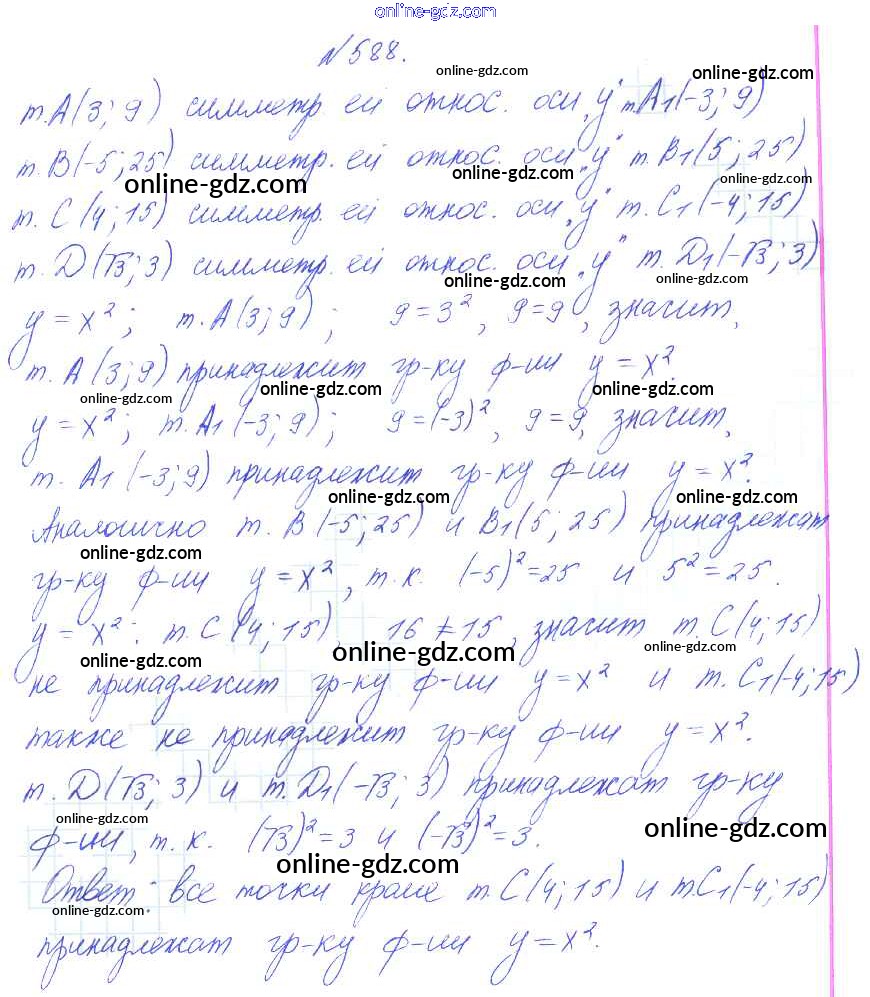 online-gdz.com
№588.
online-gdz.com online-gdz.com
т.А(3; 9) симметр. ей относ. оси „у" т.А₁(-3; 9)
т.В(-5; 25) симметр. ей относ. оси „у" т.В₁(5; 25)
online-gdz.com online-gdz.com online-gdz.com
т.С(4; 15) симметр. ей относ. оси „у" т.С₁(-4; 15)
т.D(√3; 3) симметр. ей относ. оси „у" т.D₁(-√3; 3)
online-gdz.com online-gdz.com
y = x²; т.А(3; 9); 9=3², 9=9, значит,
т.А(3; 9) принадлежит гр-ку ф-ии y = x².
online-gdz.com online-gdz.com online-gdz.com
y = x²; т.А₁(-3; 9); 9=(-3)², 9=9, значит,
т.А₁(-3; 9) принадлежит гр-ку ф-ии y = x².
online-gdz.com online-gdz.com
Аналогично т.В(-5; 25) и В₁(5; 25) принадлежат
online-gdz.com
гр-ку ф-ии y = x², т.к. (-5)²=25 и 5²=25.
y = x²: т.С(4; 15) 16 ≠ 15, значит т.С(4; 15)
online-gdz.com online-gdz.com online-gdz.com
не принадлежит гр-ку ф-ии y = x² и т.С₁(-4; 15)
также не принадлежит гр-ку ф-ии y = x².
т.D(√3; 3) и т.D₁(-√3; 3) принадлежат гр-ку
online-gdz.com online-gdz.com
ф-ии, т.к. (√3)²=3 и (-√3)²=3.
online-gdz.com
Ответ: все точки кроме т.С(4; 15) и т.С₁(-4; 15)
online-gdz.com
принадлежат гр-ку ф-ии y = x².